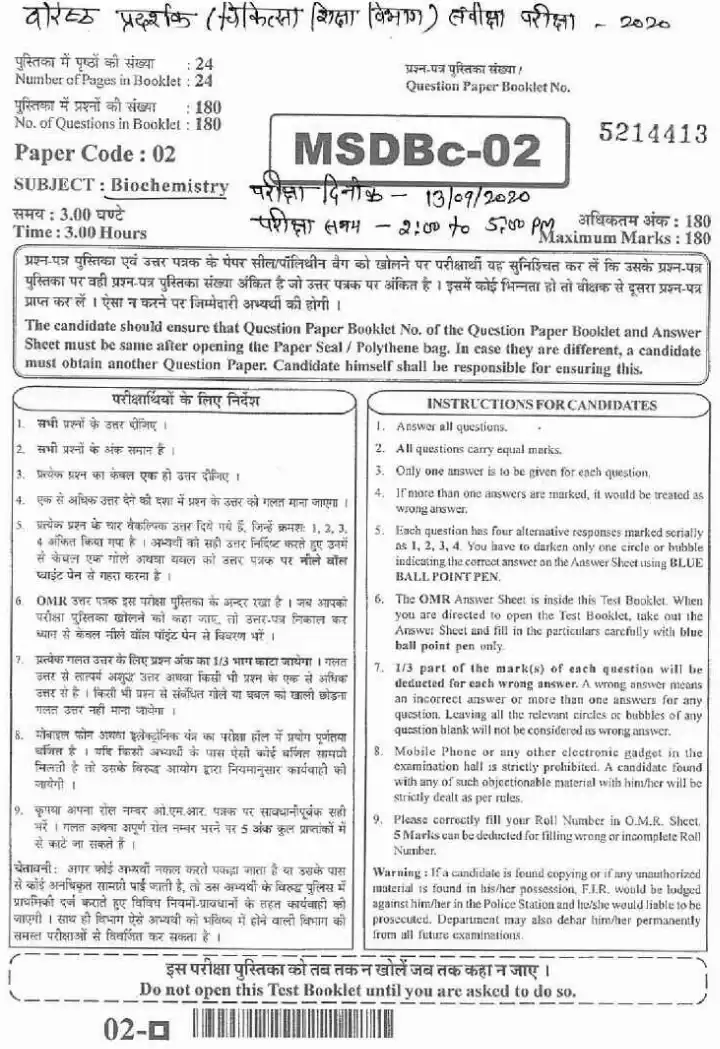 वरिष्ठ प्रदर्शक (चिकित्सा शिक्षा विभाग) संवीक्षा परीक्षा - 2020
पुस्तिका में पृष्ठों की संख्या : 24
Number of Pages in Booklet : 24
पुस्तिका में प्रश्नों की संख्या : 180
No. of Questions in Booklet : 180
Paper Code : 02
SUBJECT : Biochemistry
समय : 3.00 घण्टे
Time : 3.00 Hours
प्रश्न-पत्र पुस्तिका संख्या /
Question Paper Booklet No.
MSDBc-02
5214413
परीक्षा दिनाँक - 13/09/2020
परीक्षा समय - 2:00 to 5:00 PM
अधिकतम अंक : 180
Maximum Marks : 180
प्रश्न-पत्र पुस्तिका एवं उत्तर पत्रक के पेपर सील/पॉलिथीन बैग को खोलने पर परीक्षार्थी यह सुनिश्चित कर लें कि उसके प्रश्न-पत्र
पुस्तिका पर वही प्रश्न-पत्र पुस्तिका संख्या अंकित है जो उत्तर पत्रक पर अंकित है । इसमें कोई भिन्नता हो तो वीक्षक से दूसरा प्रश्न-पत्र
प्राप्त कर लें । ऐसा न करने पर जिम्मेदारी अभ्यर्थी की होगी ।
The candidate should ensure that Question Paper Booklet No. of the Question Paper Booklet and Answer
Sheet must be same after opening the Paper Seal / Polythene bag. In case they are different, a candidate
must obtain another Question Paper. Candidate himself shall be responsible for ensuring this.
परीक्षार्थियों के लिए निर्देश
1. सभी प्रश्नों के उत्तर दीजिए ।
2. सभी प्रश्नों के अंक समान हैं ।
3. प्रत्येक प्रश्न का केवल एक ही उत्तर दीजिए ।
4. एक से अधिक उत्तर देने की दशा में प्रश्न के उत्तर को गलत माना जाएगा ।
5. प्रत्येक प्रश्न के चार वैकल्पिक उत्तर दिये गये हैं, जिन्हें क्रमशः 1, 2, 3,
4 अंकित किया गया है । अभ्यर्थी को सही उत्तर निर्दिष्ट करते हुए उनमें
से केवल एक गोले अथवा बबल को उत्तर पत्रक पर नीले बॉल
प्वाइंट पेन से गहरा करना है ।
6. OMR उत्तर पत्रक इस परीक्षा पुस्तिका के अन्दर रखा है । जब आपको
परीक्षा पुस्तिका खोलने को कहा जाए, तो उत्तर-पत्र निकाल कर
ध्यान से केवल नीले बॉल पॉइंट पेन से विवरण भरें ।
7. प्रत्येक गलत उत्तर के लिए प्रश्न अंक का 1/3 भाग काटा जायेगा । गलत
उत्तर से तात्पर्य अशुद्ध उत्तर अथवा किसी भी प्रश्न के एक से अधिक
उत्तर से है । किसी भी प्रश्न से संबंधित गोले या बबल को खाली छोड़ना
गलत उत्तर नहीं माना जायेगा ।
8. मोबाइल फोन अथवा इलेक्ट्रॉनिक यंत्र का परीक्षा हॉल में प्रयोग पूर्णतया
वर्जित है । यदि किसी अभ्यर्थी के पास ऐसी कोई वर्जित सामग्री
मिलती है तो उसके विरुद्ध आयोग द्वारा नियमानुसार कार्यवाही की
जायेगी ।
9. कृपया अपना रोल नम्बर ओ.एम.आर. पत्रक पर सावधानीपूर्वक सही
भरें । गलत अथवा अपूर्ण रोल नम्बर भरने पर 5 अंक कुल प्राप्तांकों में
से काटे जा सकते हैं ।
चेतावनी : अगर कोई अभ्यर्थी नकल करते पकड़ा जाता है या उसके पास
से कोई अनधिकृत सामग्री पाई जाती है, तो उस अभ्यर्थी के विरुद्ध पुलिस में
प्राथमिकी दर्ज कराते हुए विविध नियमों-प्रावधानों के तहत कार्यवाही की
जाएगी । साथ ही विभाग ऐसे अभ्यर्थी को भविष्य में होने वाली विभाग की
समस्त परीक्षाओं से विवर्जित कर सकता है ।
INSTRUCTIONS FOR CANDIDATES
1. Answer all questions.
2. All questions carry equal marks.
3. Only one answer is to be given for each question.
4. If more than one answers are marked, it would be treated as
wrong answer.
5. Each question has four alternative responses marked serially
as 1, 2, 3, 4. You have to darken only one circle or bubble
indicating the correct answer on the Answer Sheet using BLUE
BALL POINT PEN.
6. The OMR Answer Sheet is inside this Test Booklet. When
you are directed to open the Test Booklet, take out the
Answer Sheet and fill in the particulars carefully with blue
ball point pen only.
7. 1/3 part of the mark(s) of each question will be
deducted for each wrong answer. A wrong answer means
an incorrect answer or more than one answers for any
question. Leaving all the relevant circles or bubbles of any
question blank will not be considered as wrong answer.
8. Mobile Phone or any other electronic gadget in the
examination hall is strictly prohibited. A candidate found
with any of such objectionable material with him/her will be
strictly dealt as per rules.
9. Please correctly fill your Roll Number in O.M.R. Sheet.
5 Marks can be deducted for filling wrong or incomplete Roll
Number.
Warning : If a candidate is found copying or if any unauthorized
material is found in his/her possession, F.I.R. would be lodged
against him/her in the Police Station and he/she would liable to be
prosecuted. Department may also debar him/her permanently
from all future examinations.
इस परीक्षा पुस्तिका को तब तक न खोलें जब तक कहा न जाए ।
Do not open this Test Booklet until you are asked to do so.
02-